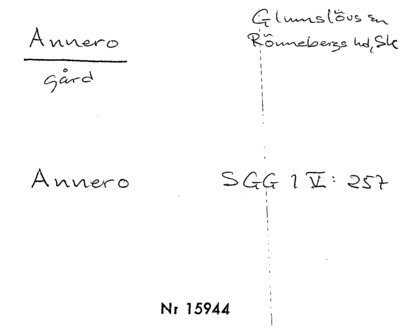 Annero
gård
Glumslövs sn
Rönnebergs hd, Sk
Annero
SGG 1 V: 257
Nr 15944